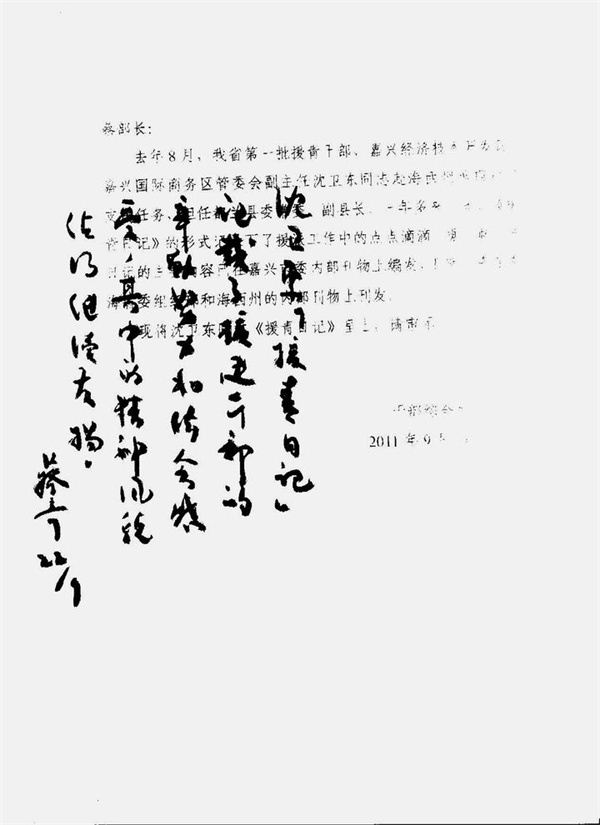 蔡部长:
去年8月,我省第一批援青干部、嘉兴经济技术开发
嘉兴国际商务区管委会副主任沈卫东同志赴海西州
任务,担任都兰县委常委、副县长。一年多
日记》的形式记下了援青工作中的点点滴滴
日记的主要内容已在嘉兴市委内部刊物上编发
海西州的内部刊物上刊发。
现将沈卫东同志《援青日记》呈上,请审示
2011年9
沈卫东"援青日记"
记载了援建干部的
辛勤努力和体会感
受,其中的精神风貌
值得继续发扬。
蔡奇
22/9